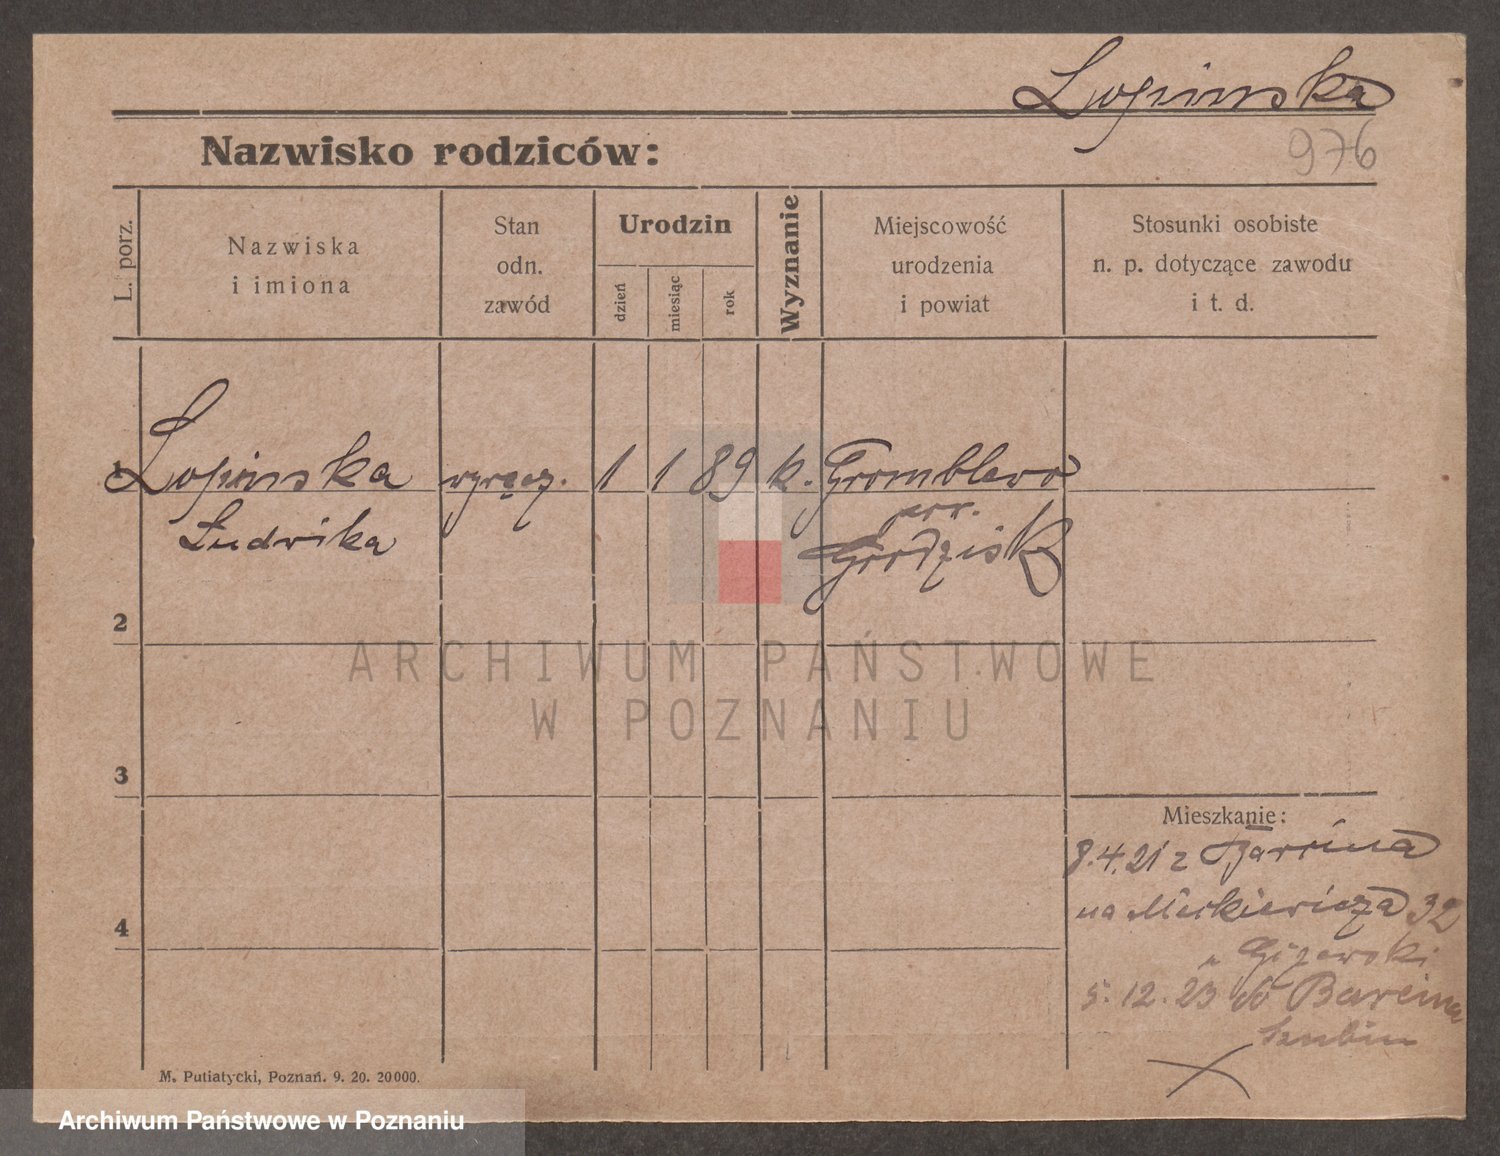 Łopińska
976
Nazwisko rodziców:
L. porz.
Nazwiska
i imiona
Stan
odn.
zawód
Urodzin
dzień
miesiąc
rok
Wyznanie
Miejscowość
urodzenia
i powiat
Stosunki osobiste
n. p. dotyczące zawodu
i t. d.
1 Łopińska 1 1 89 k. Gromblewo
Ludwika pow.
Grodzisk
2
ARCHIWUM PAŃSTWOWE
W POZNANIU
3
Mieszkanie:
8.4.21 z Barcina
na Mickiewicza 32
4
u Giżewski
5.12.23 do Barcina
Szubin
M. Putiatycki, Poznań. 9. 20. 20000.
Archiwum Państwowe w Poznaniu